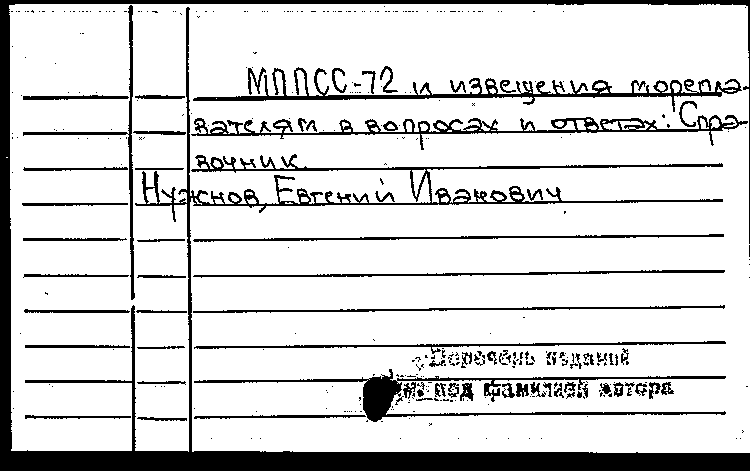 МППСС-72 и извещения морепла-
вателям в вопросах и ответах: Спра-
вочник
Нужнов, Евгений Иванович
Перечень изданий
см. под фамилией автора